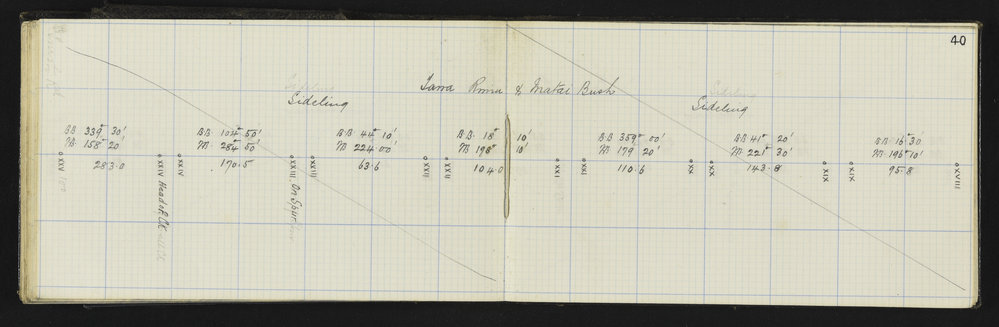 40
Tawa Rimu & Matai Bush
Sideling
Sideling
B.B. 339° 30' B.B. 104° 50' B.B. 44° 10' B.B. 18° 10' B.B. 359° 00' B.B. 41° 20' B.B. 16° 30'
M. 158° 20' M. 284° 50' M. 224 00' M. 198° 10' M. 179 20' M. 221° 30' M. 196° 10'
283.0 170.5 63.6 104.0 110.6 143.8 95.8
XXV
XXIV Head of Ck
XXIV
XXIII On Spur
XXIII
XXII
XXII
XXI
XXI
XX
XX
XIX
XIX
XVIII